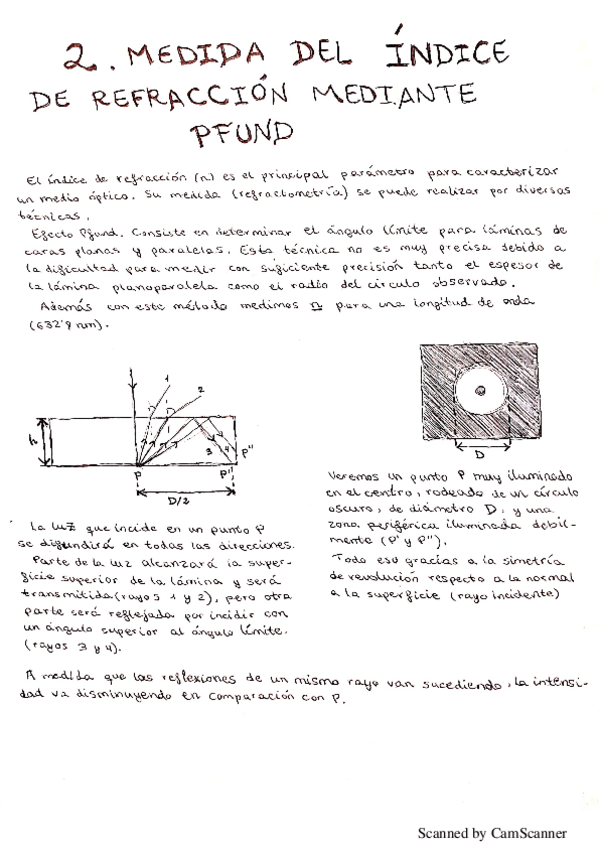 2. MEDIDA DEL ÍNDICE
DE REFRACCIÓN MEDIANTE
PFUND
El índice de refracción (n) es el principal parámetro para caracterizar
un medio óptico. Su medida (refractometría) se puede realizar por diversas
técnicas.
Efecto Pfund. Consiste en determinar el ángulo límite para láminas de
caras planas y paralelas. Esta técnica no es muy precisa debido a
la dificultad para medir con suficiente precisión tanto el espesor de
la lámina planoparalela como el radio del círculo observado.
Además con este método medimos n para una longitud de onda
(632'8 nm).
1
2
h
3
4
P"
P
P'
D/2
D
La luz que incide en un punto P
se difundirá en todas las direcciones.
Parte de la luz alcanzará la super-
ficie superior de la lámina y será
transmitida (rayos 1 y 2), pero otra
parte será reflejada por incidir con
un ángulo superior al ángulo límite.
(rayos 3 y 4).
Veremos un punto P muy iluminado
en el centro, rodeado de un círculo
oscuro, de diámetro D, y una
zona periférica iluminada débil-
mente (P' y P").
Todo eso gracias a la simetría
de revolución respecto a la normal
a la superficie (rayo incidente)
A medida que las reflexiones de un mismo rayo van sucediendo, la intensi-
dad va disminuyendo en comparación con P.
Scanned by CamScanner